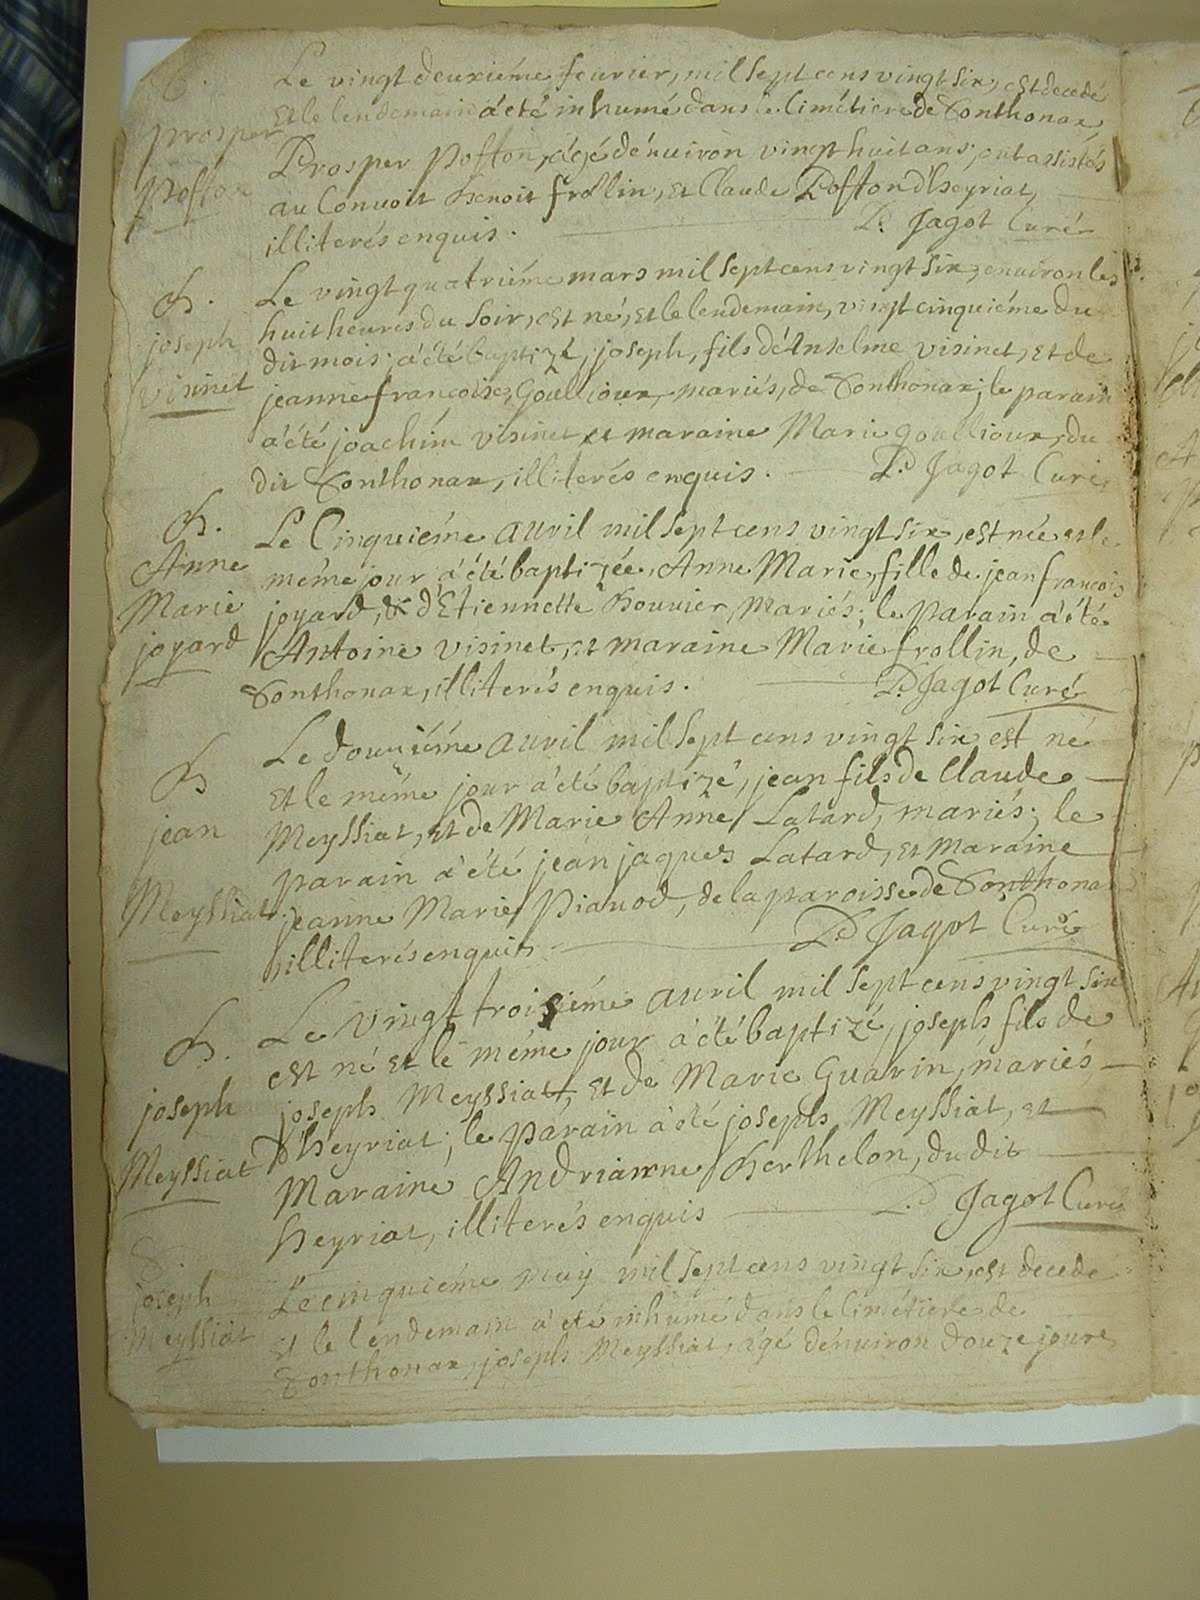 Le vingt deuxiéme feurier, mil sept cens vingt six, est decedé
et le lendemain a été inhumé dans le cimétiere de Sonthonax,
prosper
Prosper Poffon, agé dénuiron vingt huit ans, ont assistés
poffon
au Conuoit Benoit frollin, et Claude Poffon d'heyriat,
illiterés enquis. D. Jagot Curé
B.
Le vingt quatriéme mars mil sept cens vingt six, enuiron les
huit heures du soir, est né, et le lendemain, vingt cinquiéme du
joseph
dit mois, a été baptizé, joseph, fils d'Anselme visinet, et de
visinet
jeanne françoise, Goullioux, mariés, de Sonthonax; le parain
a été joachim visinet et maraine Marie goullioux, du
dit Sonthonax, illiterés enquis. D. Jagot Curé
B.
Le Cinquiéme auril mil sept cens vingt six, est née et le
Anne
méme jour a été baptizée, Anne Marie, fille de jean françois
Marie
joyard, & d'Etiennette Bouuier, Mariés; le parain a été
joyard
Antoine visinet, et maraine Marie frollin, de
Sonthonax, illiterés enquis. D. Jagot Curé
Le douziéme auril mil sept cens vingt six est né
B
et le méme jour a été baptizé, jean fils de Claude
jean
Meyssiat, et de Marie Anne Latard, mariés; le
parain a été jean jaques Latard, et Maraine
Meyssiat
jeanne Marie Piauod, de la paroisse de Sonthonax
illiterés enquis D. Jagot Curé
Le vingt troisiéme auril mil sept cens vingt six
B.
est né et le méme jour a été baptizé, joseph fils de
joseph
joseph Meyssiat, et de Marie Guarin, mariés
d'heyriat; le parain a été joseph Meyssiat, et
Meyssiat
Maraine Andrianne Berthelon, du dit
heyriat, illiterés enquis D. Jagot Curé
joseph
Le cinquiéme may mil sept cens vingt six, est decede
Meyssiat
et le lendemain a été inhumé dans le cimétiere de
Sonthonax, joseph Meyssiat, agé dénuiron douze jours